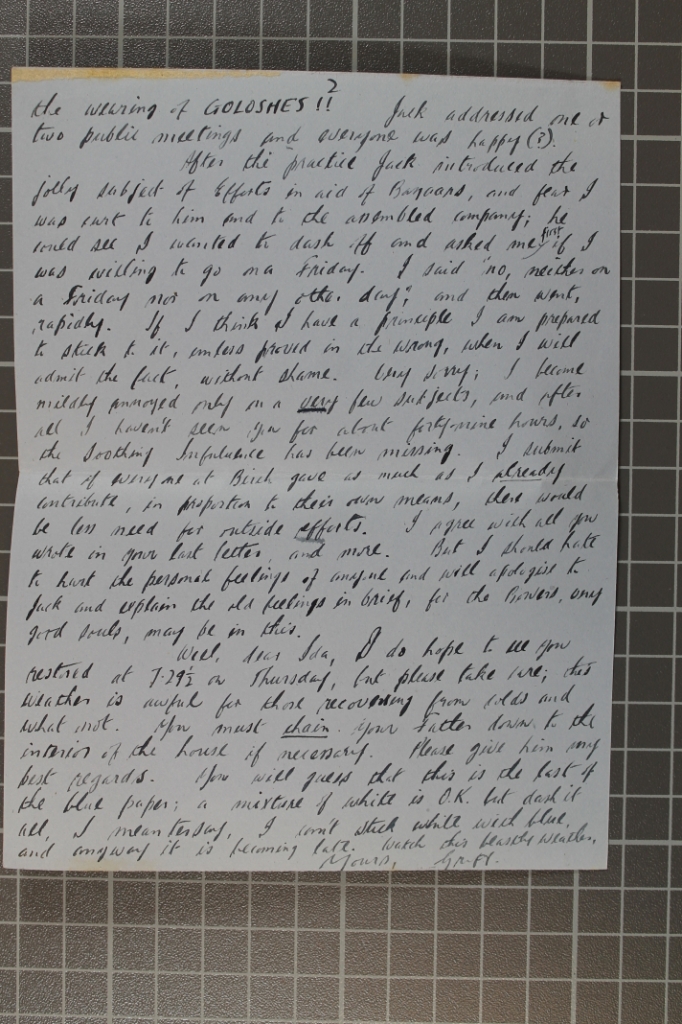 2
the wearing of GOLOSHES!! Jack addressed one or
two public meetings and everyone was happy (?).
After the practice Jack introduced the
jolly subject of Efforts in aid of Bazaars, and fear I
was curt to him and to the assembled company; he
could see I wanted to dash off and asked me first if I
was willing to go on a Friday. I said "no, neither on
a Friday nor on any other day", and then went,
rapidly. If I think I have a principle I am prepared
to stick to it, unless proved in the wrong, when I will
admit the fact, without shame. Very sorry; I become
mildly annoyed only on a very few subjects, and after
all I haven't seen you for about forty-nine hours, so
the Soothing Influence has been missing. I submit
that if everyone at Birch gave as much as I already
contribute, in proportion to their own means, there would
be less need for outside efforts. I agree with all you
wrote in your last letter, and more. But I should hate
to hurt the personal feelings of anyone and will apologise to
Jack and explain the old feelings in brief, for the
good souls, may be in this.
Well, dear Ida, I do hope to see you
restored at 7-29½ on Thursday, but please take care; this
weather is awful for those recovering from colds and
what not. You must chain your Father down to the
interior of the house if necessary. Please give him my
best regards. You will guess that this is the last of
the blue paper; a mixture of white is O.K. but dash it
all, I meantersay, I can't stick white with blue,
and anyway it is becoming late. Watch this beastly weather.
Yours,